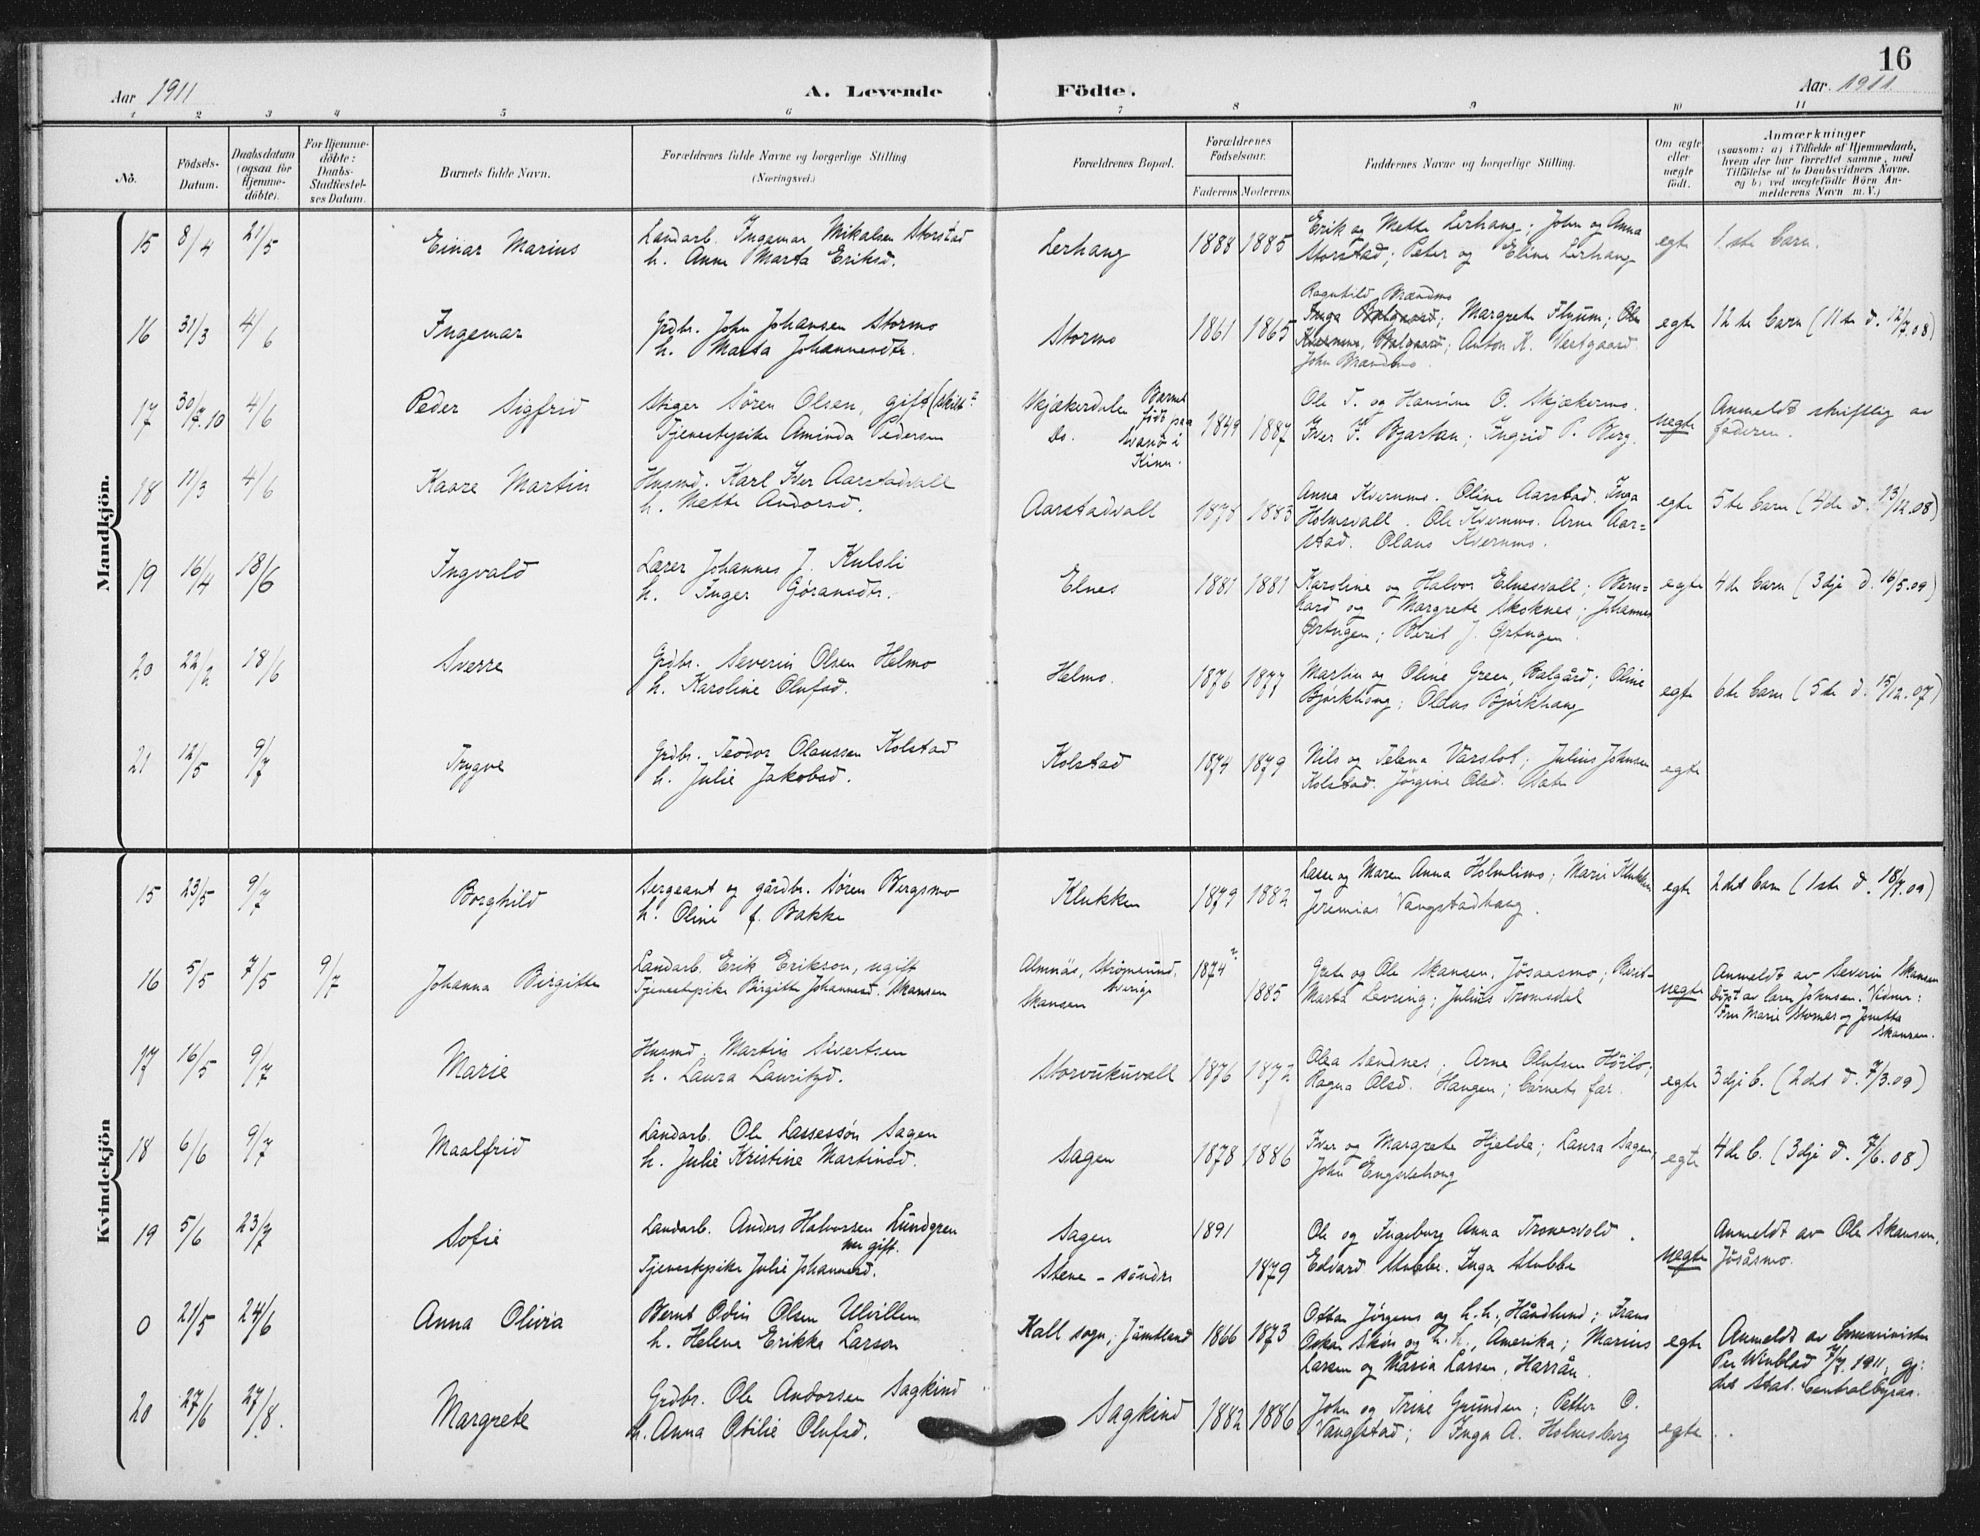 16
Aar 1911
A. Levende
Födte.
Aar 1911
1 2 3 4 5 6 7 8 9 10 11
No.
Födsels-
Datum.
Daabsdatum
(ogsaa for
Hjemme-
döbte).
For Hjemme-
döbte:
Daabs-
Stadfæstel-
ses Datum.
Barnets fulde Navn.
Forældrenes fulde Navne og borgerlige Stilling
(Næringsvei.)
Forældrenes Bopæl.
Forældrenes
Födselsaar.
Faderens Moderens
Faddernes Navne og borgerlige Stilling.
Om ægte
eller
uægte
födt.
Anmærkninger
(saasom: a) i Tilfælde af Hjemmedaab,
hvem der har forrettet samme, med
Tilföielse af to Daabsvidners Navne.
og b) ved uægtefödte Börn An-
melderens Navn m. V.)
Mandkjön.
15 8/4 21/5 Einar Marius Landarb. Ingemar Mikalsen Storstad Lerhaug 1888 1885 Erik og Mette Lerhaug; John og Anna egte 1ste barn.
h. Anne Marta Eriksd. Storstad; Peter og Eline Lerhaug
Ragnhild Brændmo
16 31/3 4/6 Ingemar Grdbr. John Johansen Stormo Stormo 1861 1865 Inga Balgaard; Margrete Flyum; Ole egte 12te barn (11te d. 12/7.08)
h. Marta Johannesdtr. Kvernmo, Balgaard; Anton K. Vestgaard.
John Brændmo.
17 30/7.10 4/6 Peder Sigfrid Stiger Søren Olsen, gift (skilt? Skjækerdalen Barnet 1849 Ole T. og Hansine O. Skjækermo. uegte Anmeldt skriftlig av
Tjenestepike Aminda Pedersen Do. født paa 1887 Iver F. Bjartan; Ingrid P. Berg. faderen.
Svanø i
Kinn.
18 11/3 4/6 Kaare Martin Husmd. Karl Iver Aarstadvall Aarstadvall 1878 1883 Anna Kvernmo. Oline Aarstad. Inga egte 5te barn (4de d. 13/12.08)
h. Mette Andorsd. Holmsvall. Ole Kvernmo. Arne Aar=
stad. Olaus Kvernmo.
19 16/4 18/6 Ingvald Lærer Johannes J. Kulsli Elnes 1881 1881 Karoline og Halvor Elnesvall; Bern= egte 4de barn (3dje d. 16/5.09)
h. Inger Gøransdtr. hard og Margrete Skoknes; Johannes
Ørtugen; Berit J. Ørtugen.
20 22/2 18/6 Sverre Grdbr. Severin Olsen Helmo Helmo. 1876 1877 Martin og Oline Green, Balgård; Oline egte 6te barn (5te d. 15/12.07)
h. Karoline Olufsd. Bjørkhaug; Olaus Bjørkhaug
21 12/5 9/7 Trygve Grdbr. Teodor Olaussen Kolstad Kolstad 1874 1879 Nils og Telena Varslot; Julius Johnsen egte
h. Julie Jakobsd. Kolstad. Jørgine Olsd.
Kvindekjön
15 23/5 9/7 Borghild Sergeant og gårdbr. Søren Bergsmo Klukken 1879 1882 Lasse og Maren Anna Holmlimo; Marie Klukken egte 2det barn (1ste d. 18/7.09)
h. Oline f. Bakke Jeremias Vangstadhaug.
16 5/5 7/5 9/7 Johanna Birgitte Landarb. Erik Erikson, ugift Almnäs, Strømsund, Sverige 1874? Grete og Ole Skansen, Jösaasmo; Berit- uegte Anmeldt av Severin Skansen
Tjenestepike Birgitte Johannesd. Skansen Skansen 1885 Marta Levring; Julius Tromsdal Døpt av Caren Johnsen. Vidner:
Fru Marie Stormes og Jonetta
Skansen.
17 16/5 9/7 Marie Husmd. Martin Sivertsen Storvukuvall 1876 1872 Olea Sandnes; Arne Olufsen Høilo; egte 3dje b. (2det d. 7/3.09)
h. Laura Lauritzd. Ragna Olsd. Haugen; barnets far.
18 6/6 9/7 Maalfrid Landarb. Ole Lassessøn Sagen Sagen 1878 1886 Iver og Margrete Hjelde; Laura Sagen, egte 4de b. (3dje d. 7/6.08)
h. Julie Kristine Martinsd. John Engstehaug
19 5/6 23/7 Sofie Landarb. Anders Halvorsen Lundgren Sagen 1891 Ole og Ingeborg Anna Tronesvold. uegte Anmeldt av Ole Skansen,
nu gift.
Tjenestepike Julie Johannesd. Stene - søndre 1879 Edvard Stubbe. Inga Stubbe Jösåsmo.
0 21/5 24/6 Anna Olivia Bernt Odin Olsen Ulvillen Kall sogn, Jämtland 1866 1873 Ottar Jørgens og h. h., Håndlund; Frans egte Anmeldt av Comminister
h. Helena Erikka Larson Oskar Skörs og h. h., Amerika; Marius Per Winblad 7/7.1911, gj:
Larsen og Maria Larsen, Harrån. det Stat. Centralbyrao.
20 27/6 27/8. Margrete Grdbr. Ole Andorsen Sagkind Sagkind 1882 1886 John og Trine Grunden; Petter O. egte
h. Anna Otilie Olufsd. Vangstad; Inga A. Holmsberg